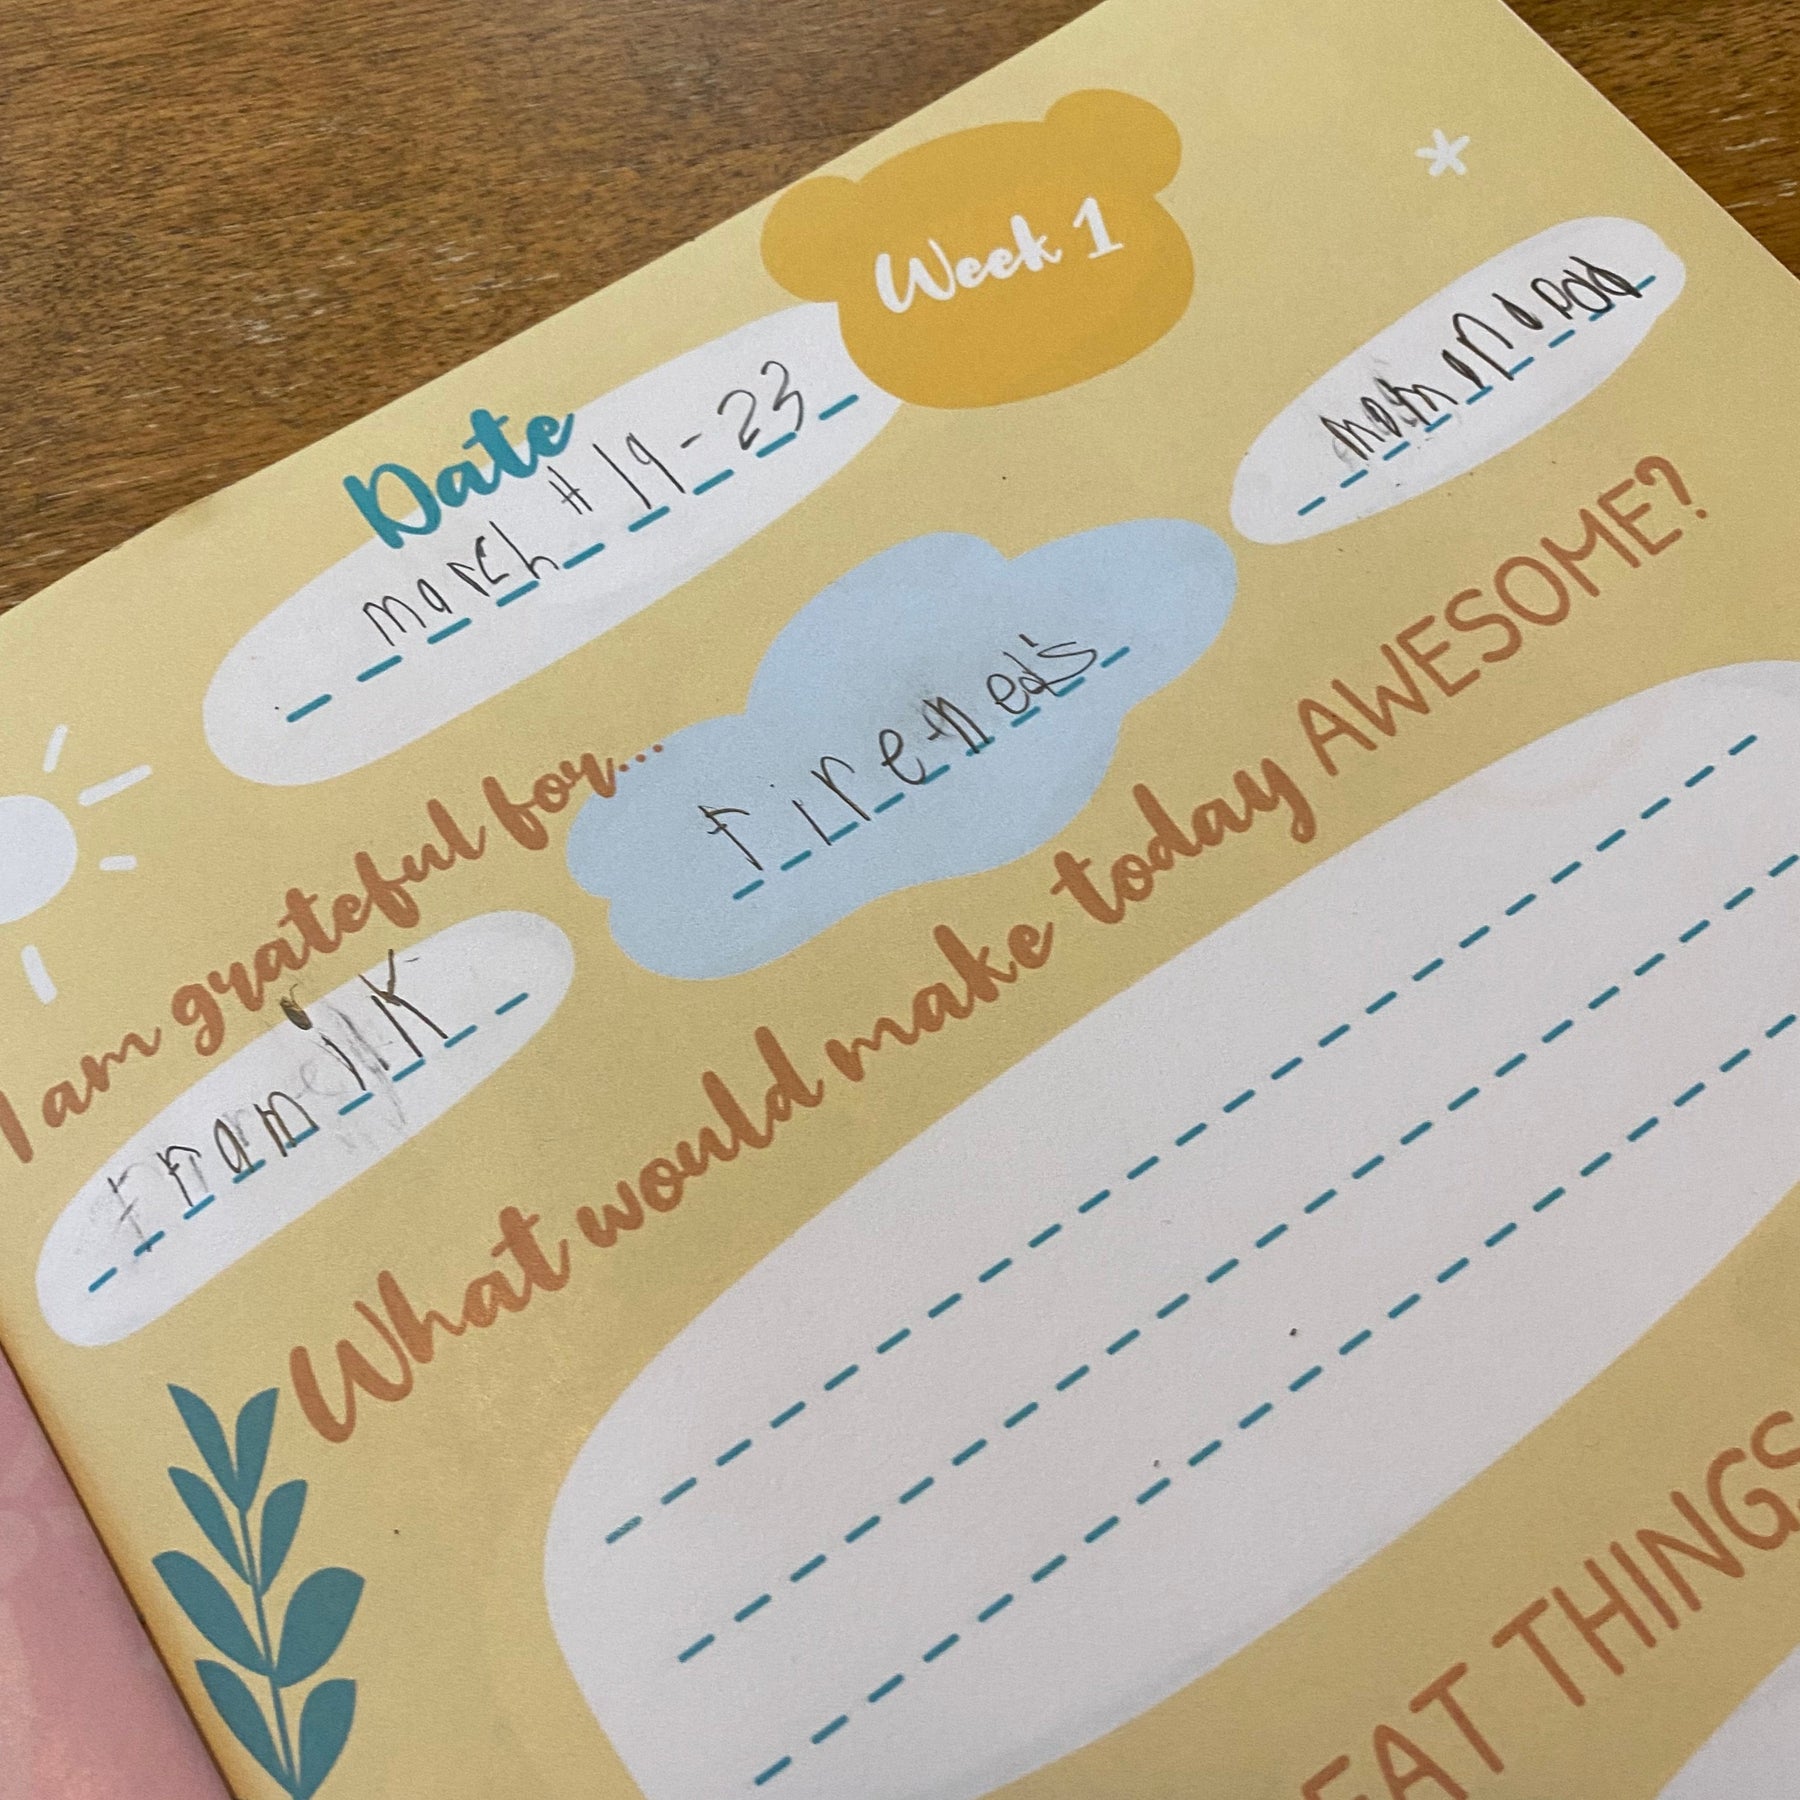 Week 1
Date
march #19-23
I am grateful for...
firened's
What would make today AWESOME?
EAT THINGS